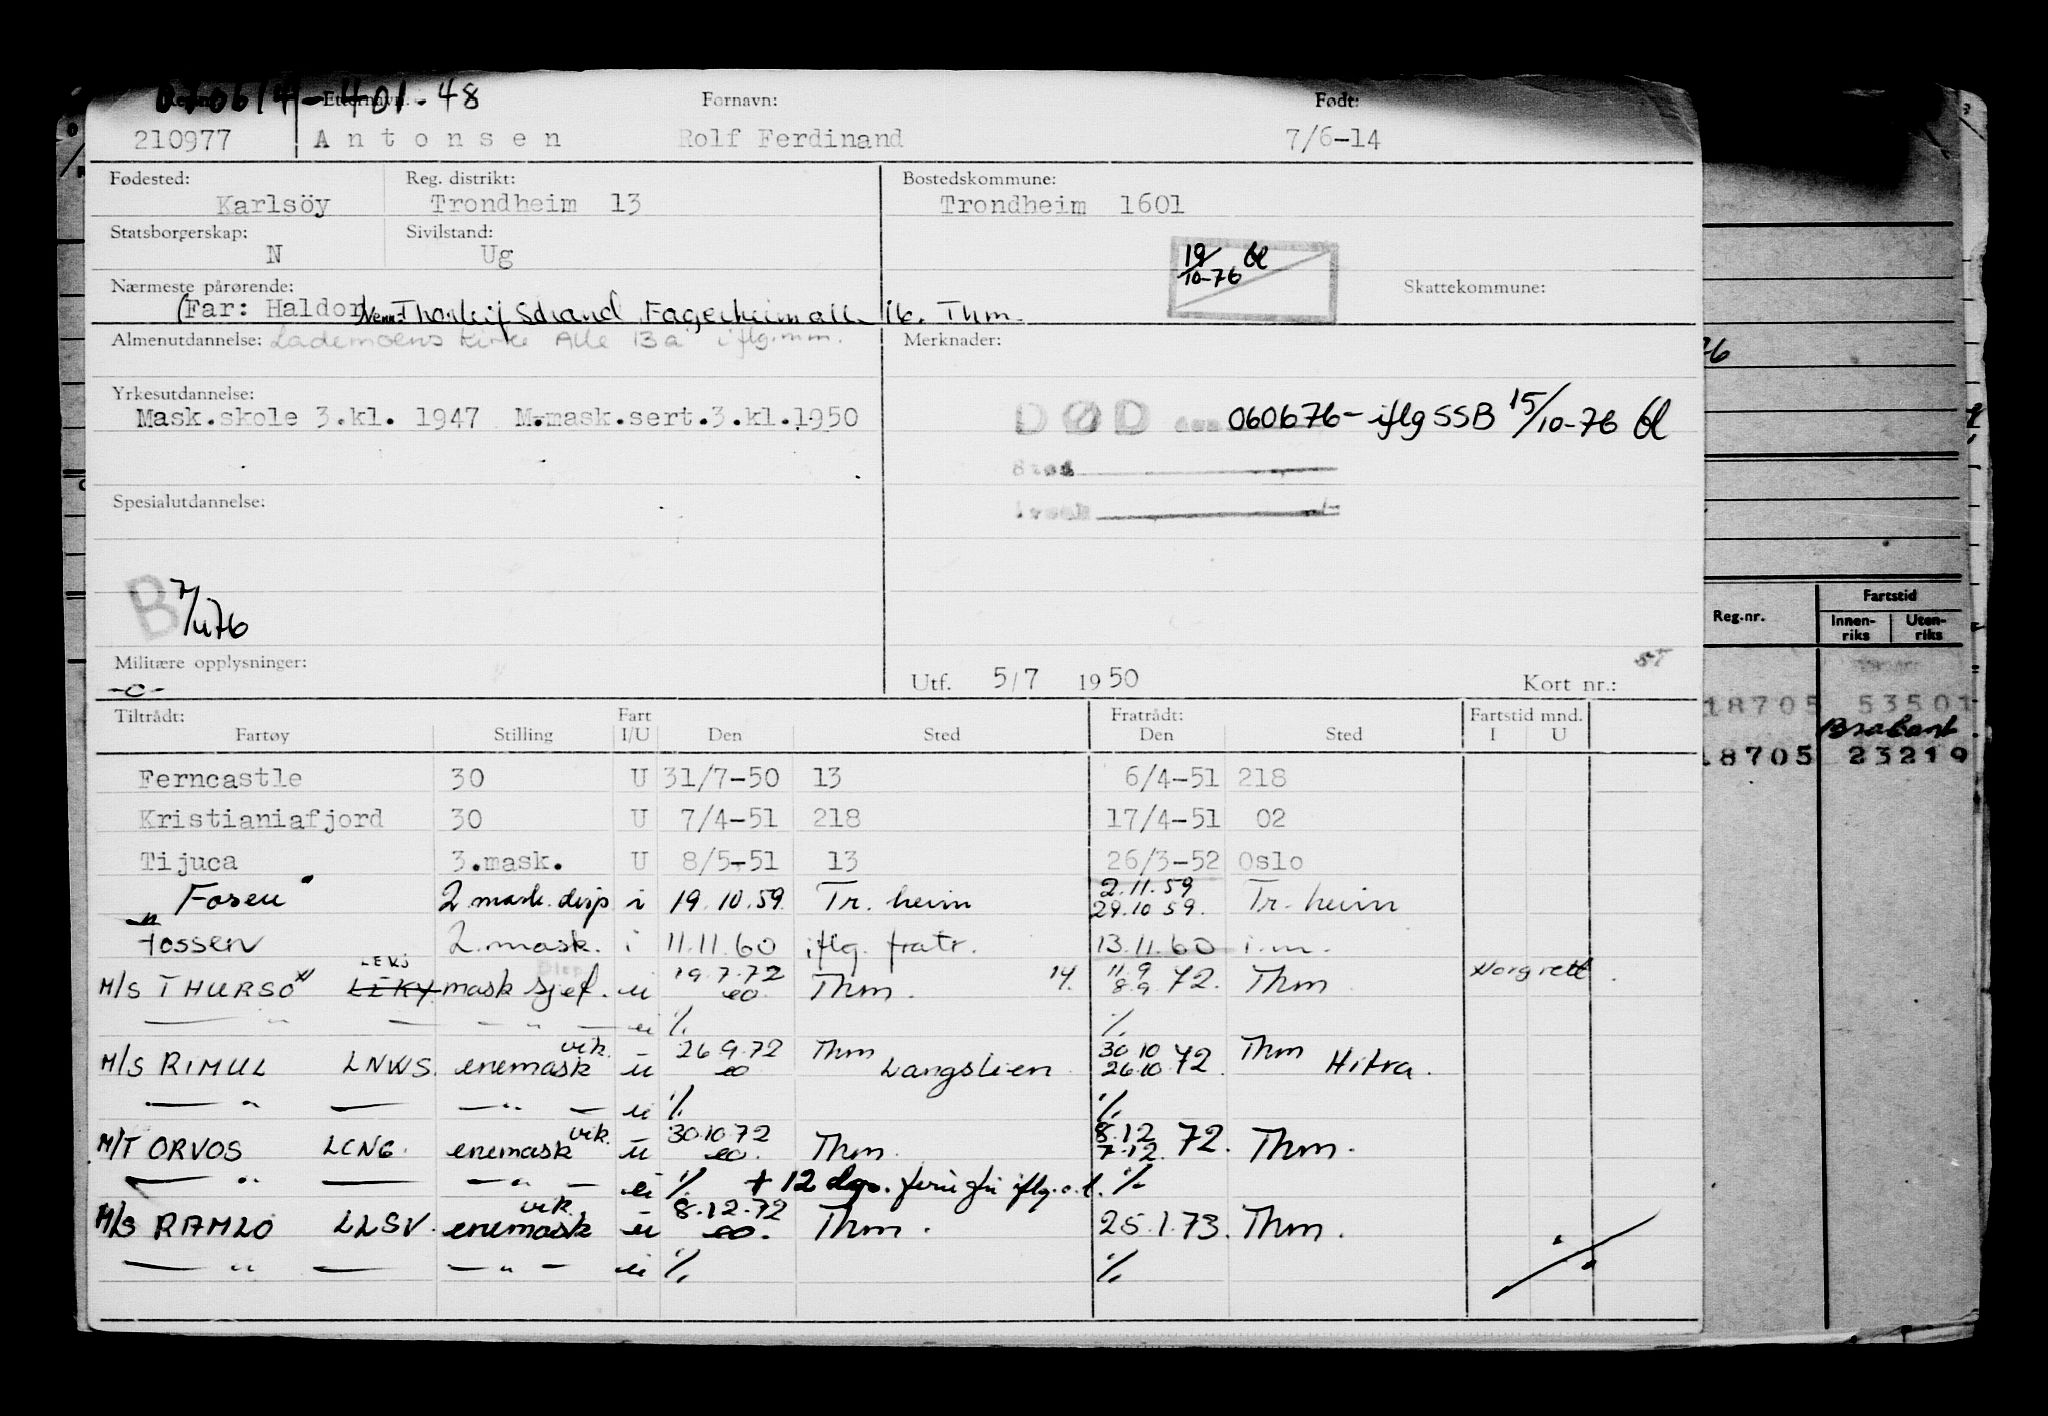 070614-401-48
Etternavn: Fornavn: Født:
210977 Antonsen Rolf Ferdinand 7/6-14
Fødested: Reg. distrikt: Bostedskommune:
Karlsöy Trondheim 13 Trondheim 1601
Statsborgerskap: Sivilstand:
N Ug
19/10-76
Nærmeste pårørende: Skattekommune:
(Far: Haldor Venn: Thorleif Strand, Fagerheim all. 16. Thm.
Almenutdannelse: Lademoens Kirke Alle 13a iflg. mm. Merknader:
Yrkesutdannelse:
Mask.skole 3.kl. 1947 M.mask.sert.3.kl.1950 DØD den 060676- iflg SSB 15/10-76
Sted
Årsak
Spesialutdannelse:
B 7/476
Militære opplysninger:
-o-
Utf. 5/7 1950 Kort nr.:
Tiltrådt: Fart Fratrådt: Fartstid mnd.
Fartøy Stilling I/U Den Sted Den Sted I U
Ferncastle 30 U 31/7-50 13 6/4-51 218
Kristianiafjord 30 U 7/4-51 218 17/4-51 02
Tijuca 3.mask. U 8/5-51 13 26/3-52 Oslo
"Fosen" 2 mask. disp i 19.10.59 Tr.heim 2.11.59 29.10.59. Tr.heim
Fossen 2.mask. i 11.11.60 iflg. fratr. 13.11.60 i.m.
M/S THURSO LEKJ LEKY mask sjef. u 19.7.72 eo. Thm. 14. 11.9 8.9 72. Thm Norg rett.
— " — — — " — ei % %
M/S RIMUL LNWS. enemask vik. u 26.9.72 eo Thm Langslien 30.10 26.10 72. Thm Hitra.
— " — — — " — ei % %
M/T ORVOS LCNG. enemask vik. u 30.10.72 eo. Thm. 8.12 7.12. 72. Thm.
— " — — — " — ei % + 12 dgr. iflg. o.l. %
M/S RAMLO LLSV. enemask vik. u 8.12.72 eo. Thm. 25.1.73. Thm.
— " — — — " — ei % %
Reg.nr. Fartstid
Innenriks Utenriks
18705 53501
Brabant
18705 23219